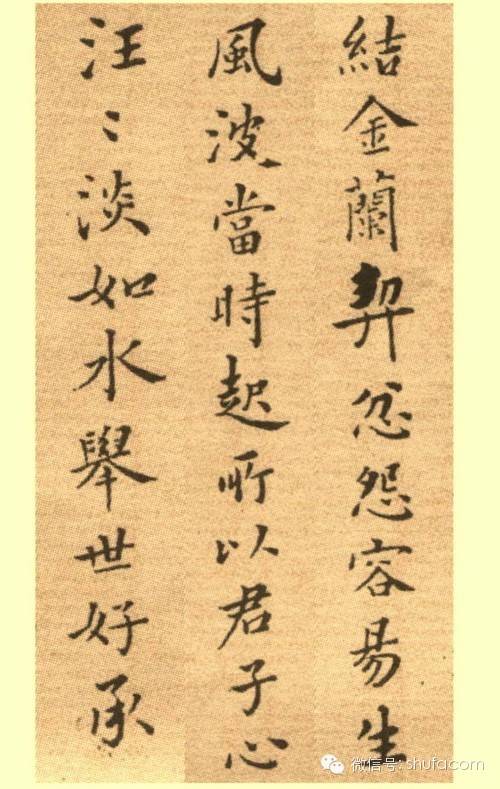 結金蘭契忿怨容易生
風波當時起所以君子心
汪〻淡如水舉世好承
微信号: shufacom